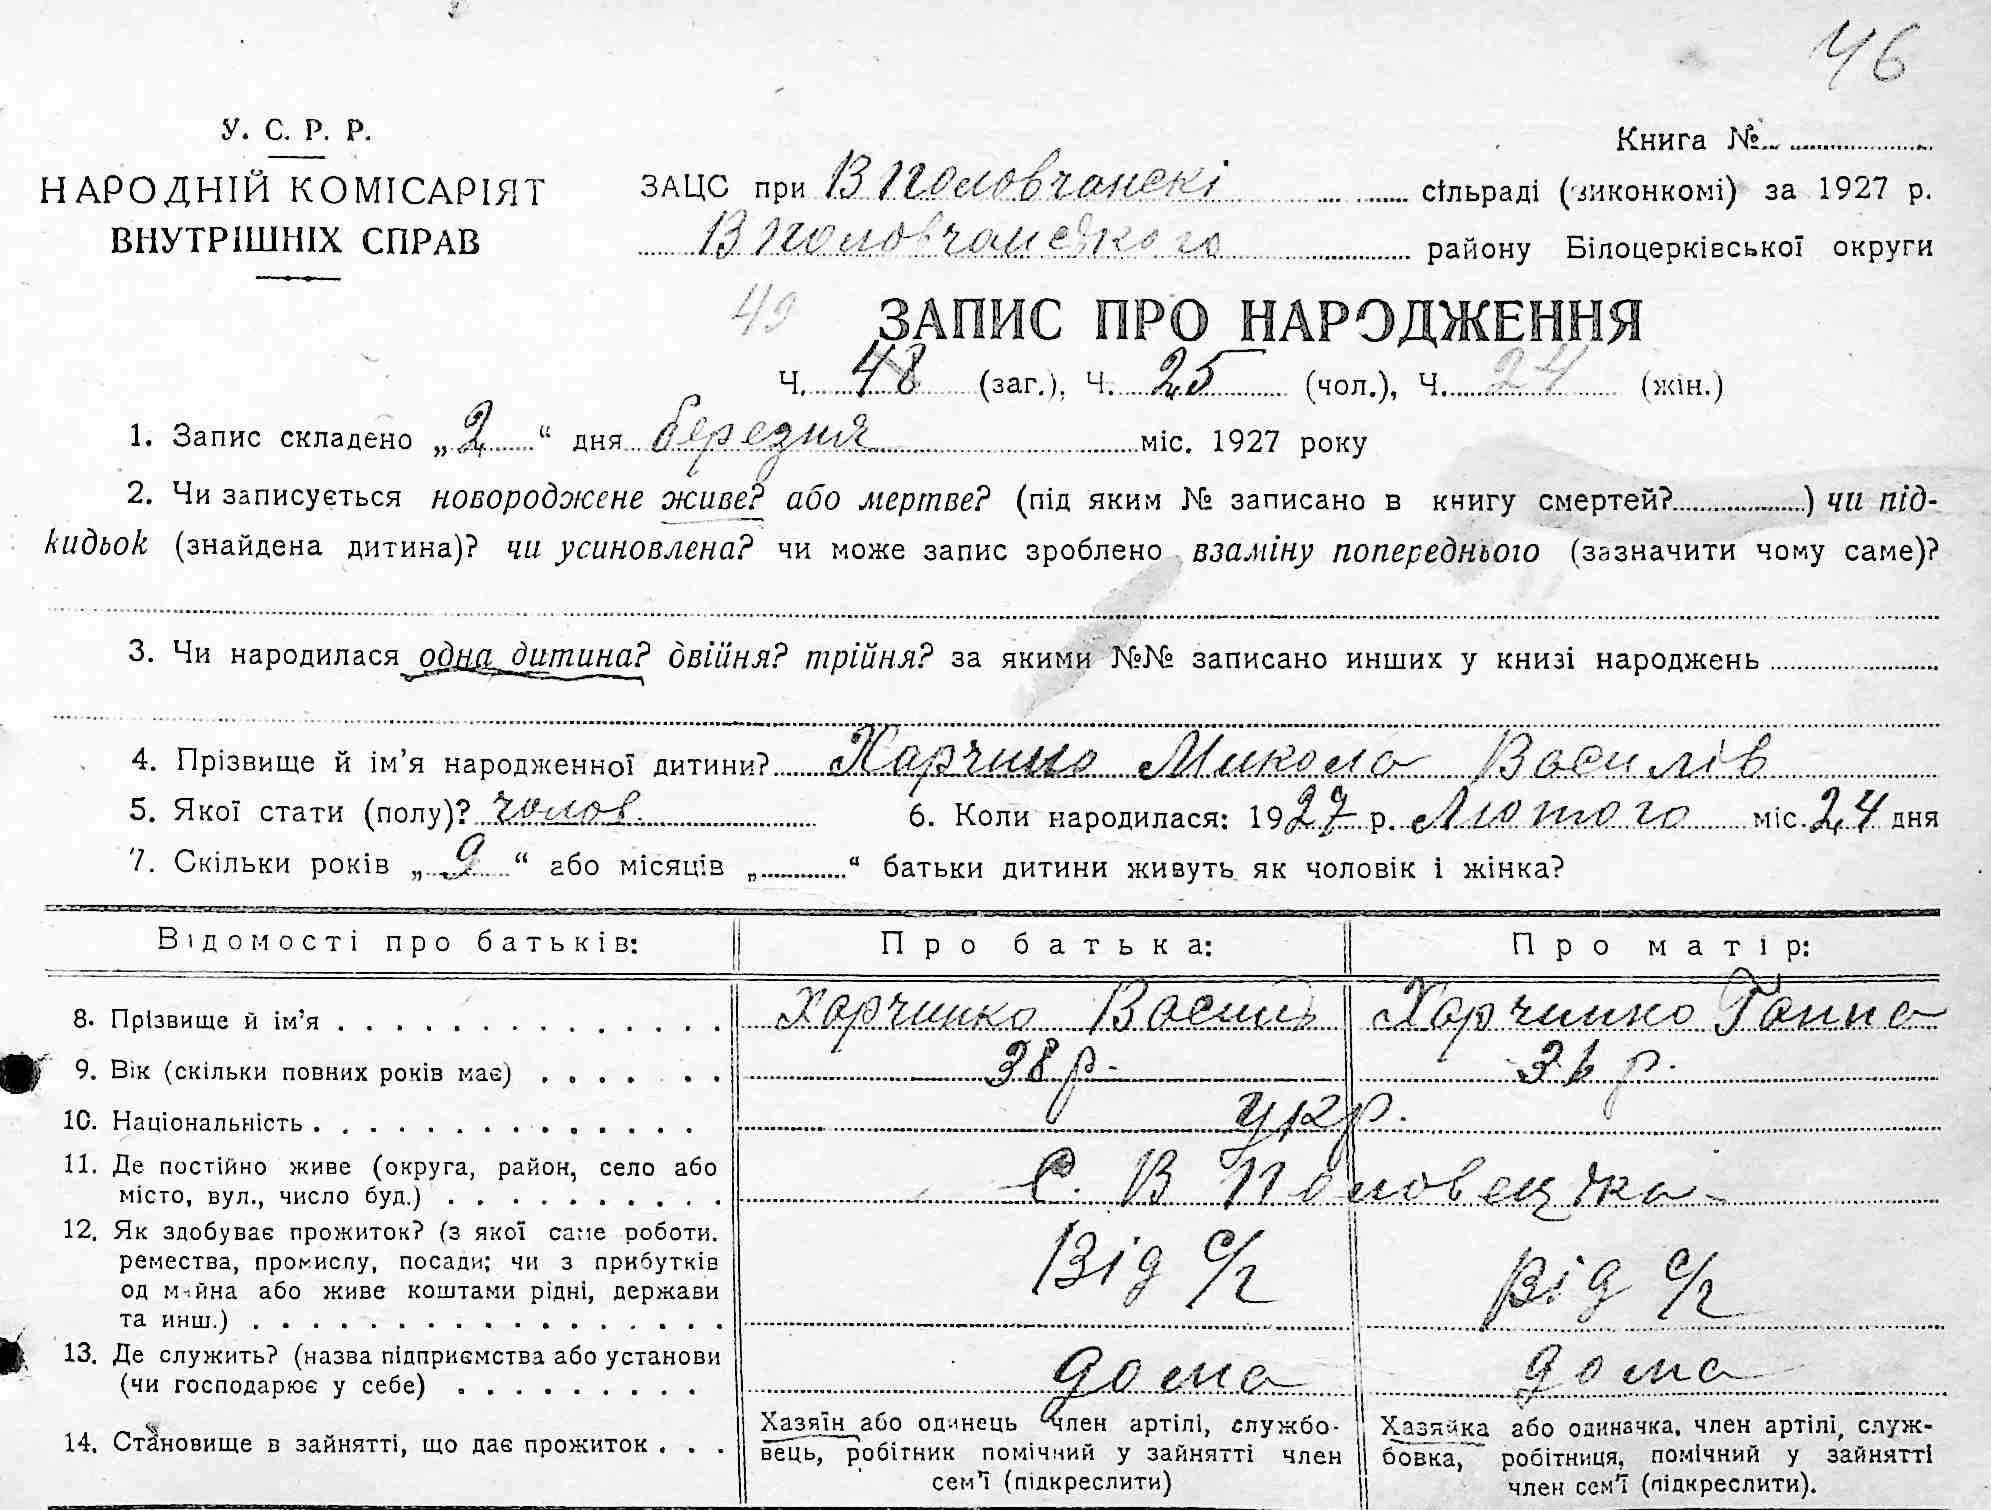 46
У. С. Р. Р.
НАРОДНІЙ КОМІСАРІЯТ
ВНУТРІШНІХ СПРАВ
Книга №
ЗАЦС при В Половчанскі сільраді (виконкомі) за 1927 р.
В Половчанського району Білоцерківської округи
49
ЗАПИС ПРО НАРОДЖЕННЯ
Ч. 48 (заг.), Ч. 25 (чол.), Ч. 24 (жін.)
1. Запис складено „2“ дня березня міс. 1927 року
2. Чи записується новороджене живе? або мертве? (під яким № записано в книгу смертей?) чи під-
кидьок (знайдена дитина)? чи усиновлена? чи може запис зроблено взаміну попереднього (зазначити чому саме)?
3. Чи народилася одна дитина? двійня? трійня? за якими №№ записано инших у книзі народжень
4. Прізвище й ім’я народженної дитини? Харчинко Микола Василів
5. Якої стати (полу)? чолов. 6. Коли народилася: 1927 р. Лютого міс. 24 дня
7. Скільки років „9“ або місяців „“ батьки дитини живуть як чоловік і жінка?
Відомості про батьків: Про батька: Про матір:
8. Прізвище й ім’я Харчинко Василь Харчинко Ганна
9. Вік (скільки повних років має) 38 р. 36 р.
10. Національність укр.
11. Де постійно живе (округа, район, село або
місто, вул., число буд.) С. В Половецька
12. Як здобуває прожиток? (з якої саме роботи.
ремества, промислу, посади; чи з прибутків
од майна або живе коштами рідні, держави
та инш.) Від с/г від с/г
13. Де служить? (назва підприємства або установи
(чи господарює у себе) дома дома
14. Становище в зайнятті, що дає прожиток
Хазяїн або одинець член артілі, службо-
вець, робітник помічний у зайнятті член
сем’ї (підкреслити)
Хазяйка або одиначка, член артілі, служ-
бовка, робітниця, помічний у зайнятті
член сем’ї (підкреслити).